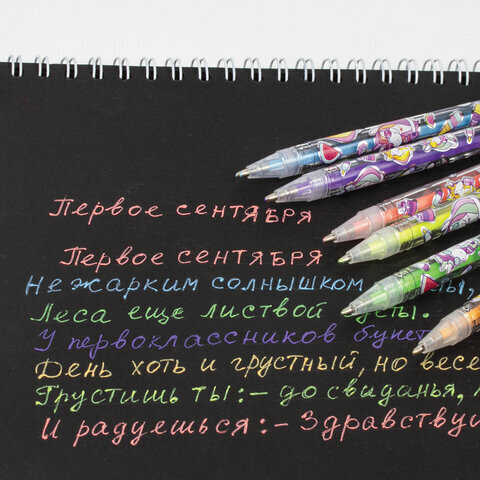 Первое сентября
Первое сентября
Нежарким солнышком ты,
Леса еще листвой густы.
У первоклассников букет
День хоть и грустный, но весе
Грустишь ты:- до свиданья, л
И радуешься:- Здравствуй